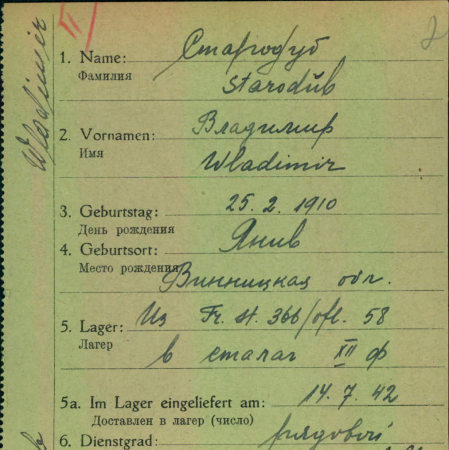 Wladimir
VI
2
1. Name: Стародуб
Фамилия
Starodub
2. Vornamen: Владимир
Имя
Wladimir
3. Geburtstag: 25. 2. 1910
День рождения
4. Geburtsort: Янив
Место рождения Винницкая обл.
5. Lager: Из Fr. st. 366/ofl. 58
Лагер
в сталаг XII ф
5a. Im Lager eingeliefert am: 14. 7. 42
Доставлен в лагер (число)
6. Dienstgrad: рядовой